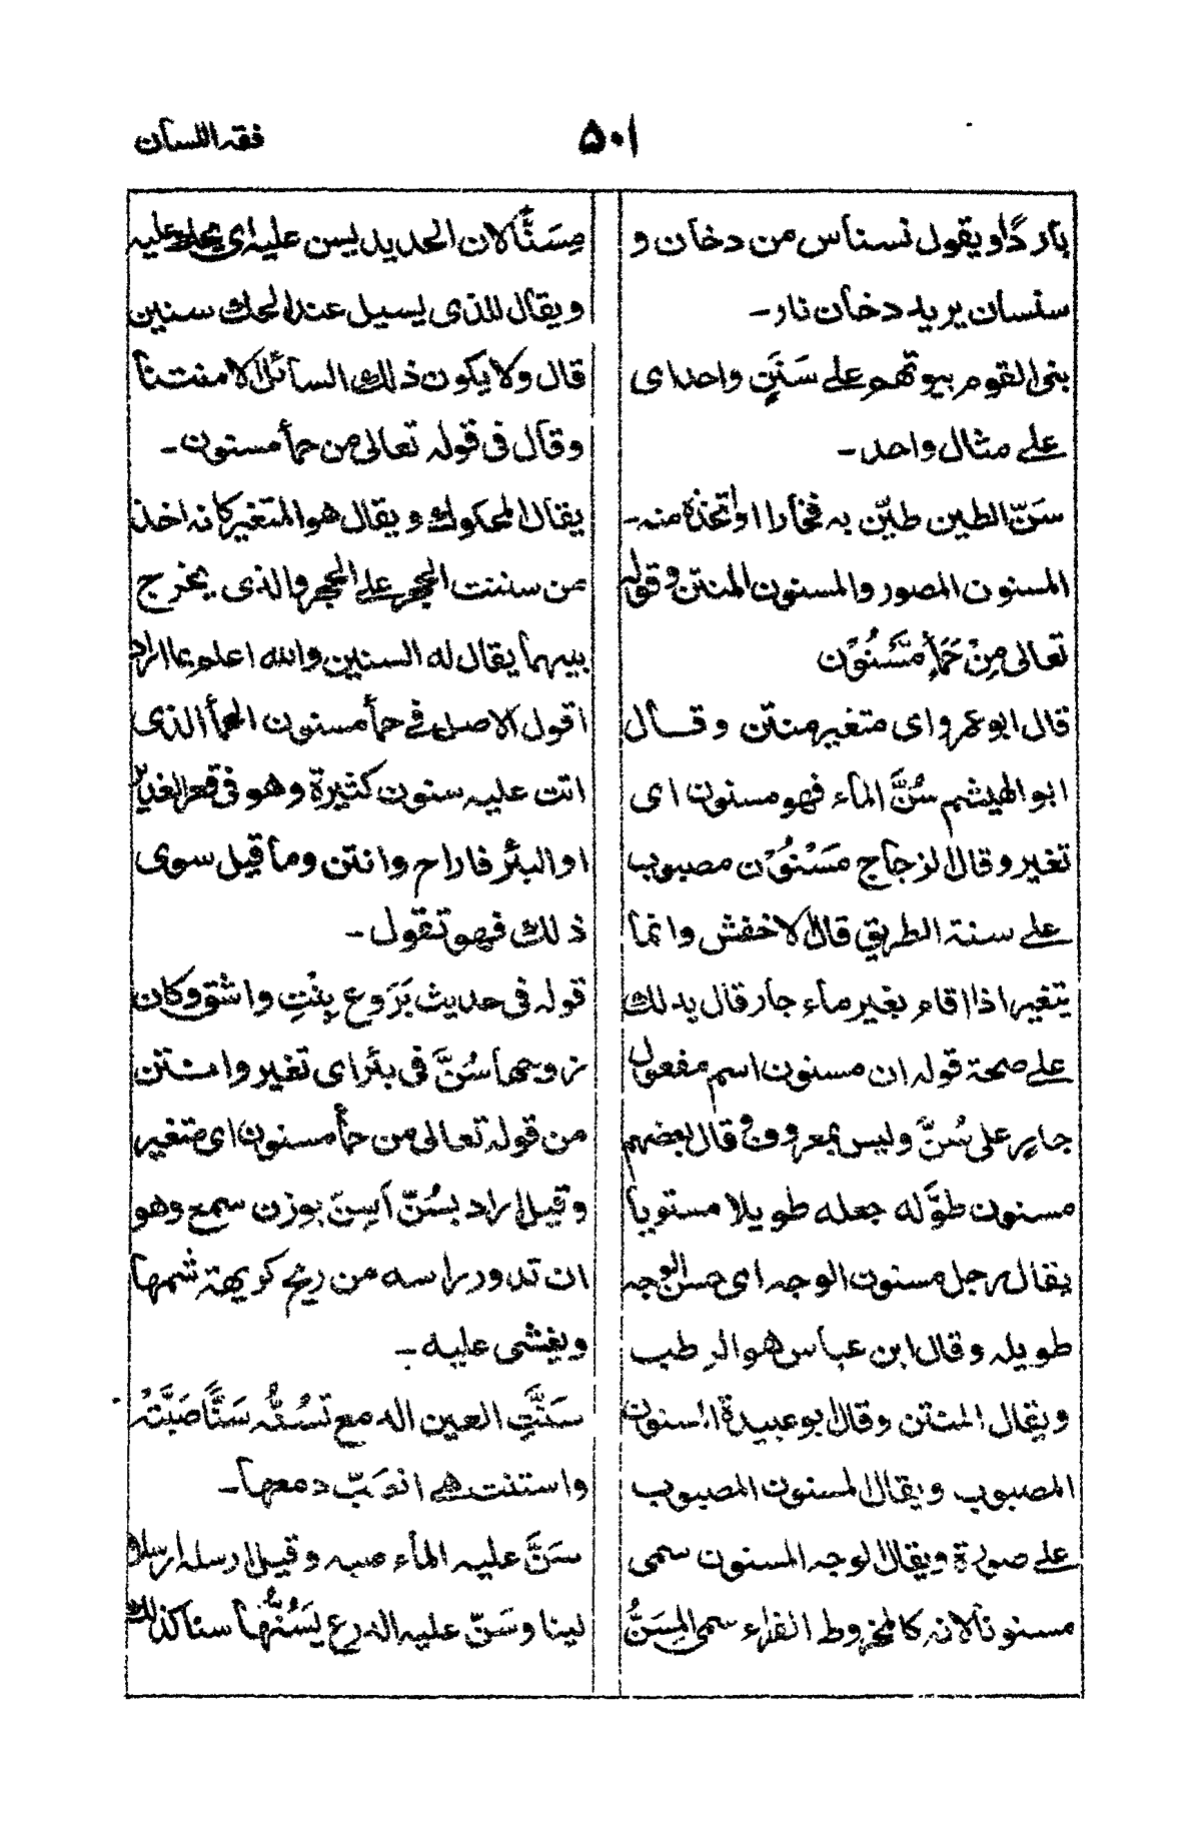 فقه اللسان
۵۰۱
باردًا ويقول نسناس من دخان و
سنسان يريد دخان نار۔
بنى القوم بيوتهم على سَنَنٍ واحد اى
على مثال واحد۔
سَنّ الطين طيّن به فخارا او اتخذه منه۔
المسنون المصور والمسنون المنتن وقوله
تعالى مِنْ حَمَأٍ مَّسْنُوْن
قال ابو عمرو اى متغير منتن وقال
ابو الهيثم سُنَّ الماء فهو مسنون اى
تغير وقال الزجاج مَسْنُوْن مصبوب
على سنة الطريق قال الاخفش وانما
يتغير اذا اقام بغير ماء جار قال يدلك
على صحة قوله ان مسنون اسم مفعول
جار على سُنَّ وليس بمعروف وقال بعضهم
مسنون طوَّله جعله طويلا مستويا
يقال رجل مسنون الوجه اى حسن الوجه
طويله وقال ابن عباس هو الرطب
ويقال المنتن وقال ابو عبيدة المسنون
المصبوب ويقال المسنون المصبوب
على صورة ويقال الوجه المسنون سمى
مسنونا لانه كالمخروط الفراء سمى المِسَنُّ
مِسَنًّا لان الحديد يسن عليه اى يحك عليه
ويقال للذى يسيل عند الحك سنين
قال ولا يكون ذلك السائل الا منتنا
وقال فى قوله تعالى من حمأ مسنون۔
يقال المحكوك ويقال هو المتغير كانه اخذ
من سننت الحجر على الحجر والذى يخرج
بينهما يقال له السنين والله اعلم بما اراد
اقول الاصل فى حمأ مسنون الحمأ الذى
اتت عليه سنون كثيرة وهو فى قعر الغدير
او البئر فاراح وانتن وما قيل سوى
ذلك فهو تقول۔
قوله فى حديث بَرْوَع بِنْتِ واشق وكان
زوجها سُنَّ فى بئر اى تغير وانتن
من قوله تعالى من حمأ مسنون اى متغير
وقيل اراد بسُنّ اَسِنَ بوزن سمع وهو
ان تدور راسه من ريح كريهة شمها
ويغشى عليه۔
سَنَّتِ العين الدمع تَسُنُّه سَنًّا صَبَّتْهُ
واستنت هى انصبّ دمعها۔
سَنَّ عليه الماء صبه وقيل ارسله ارسالا
لينا وسَنّ عليه الدرع يَسُنُّها سنا كذلك